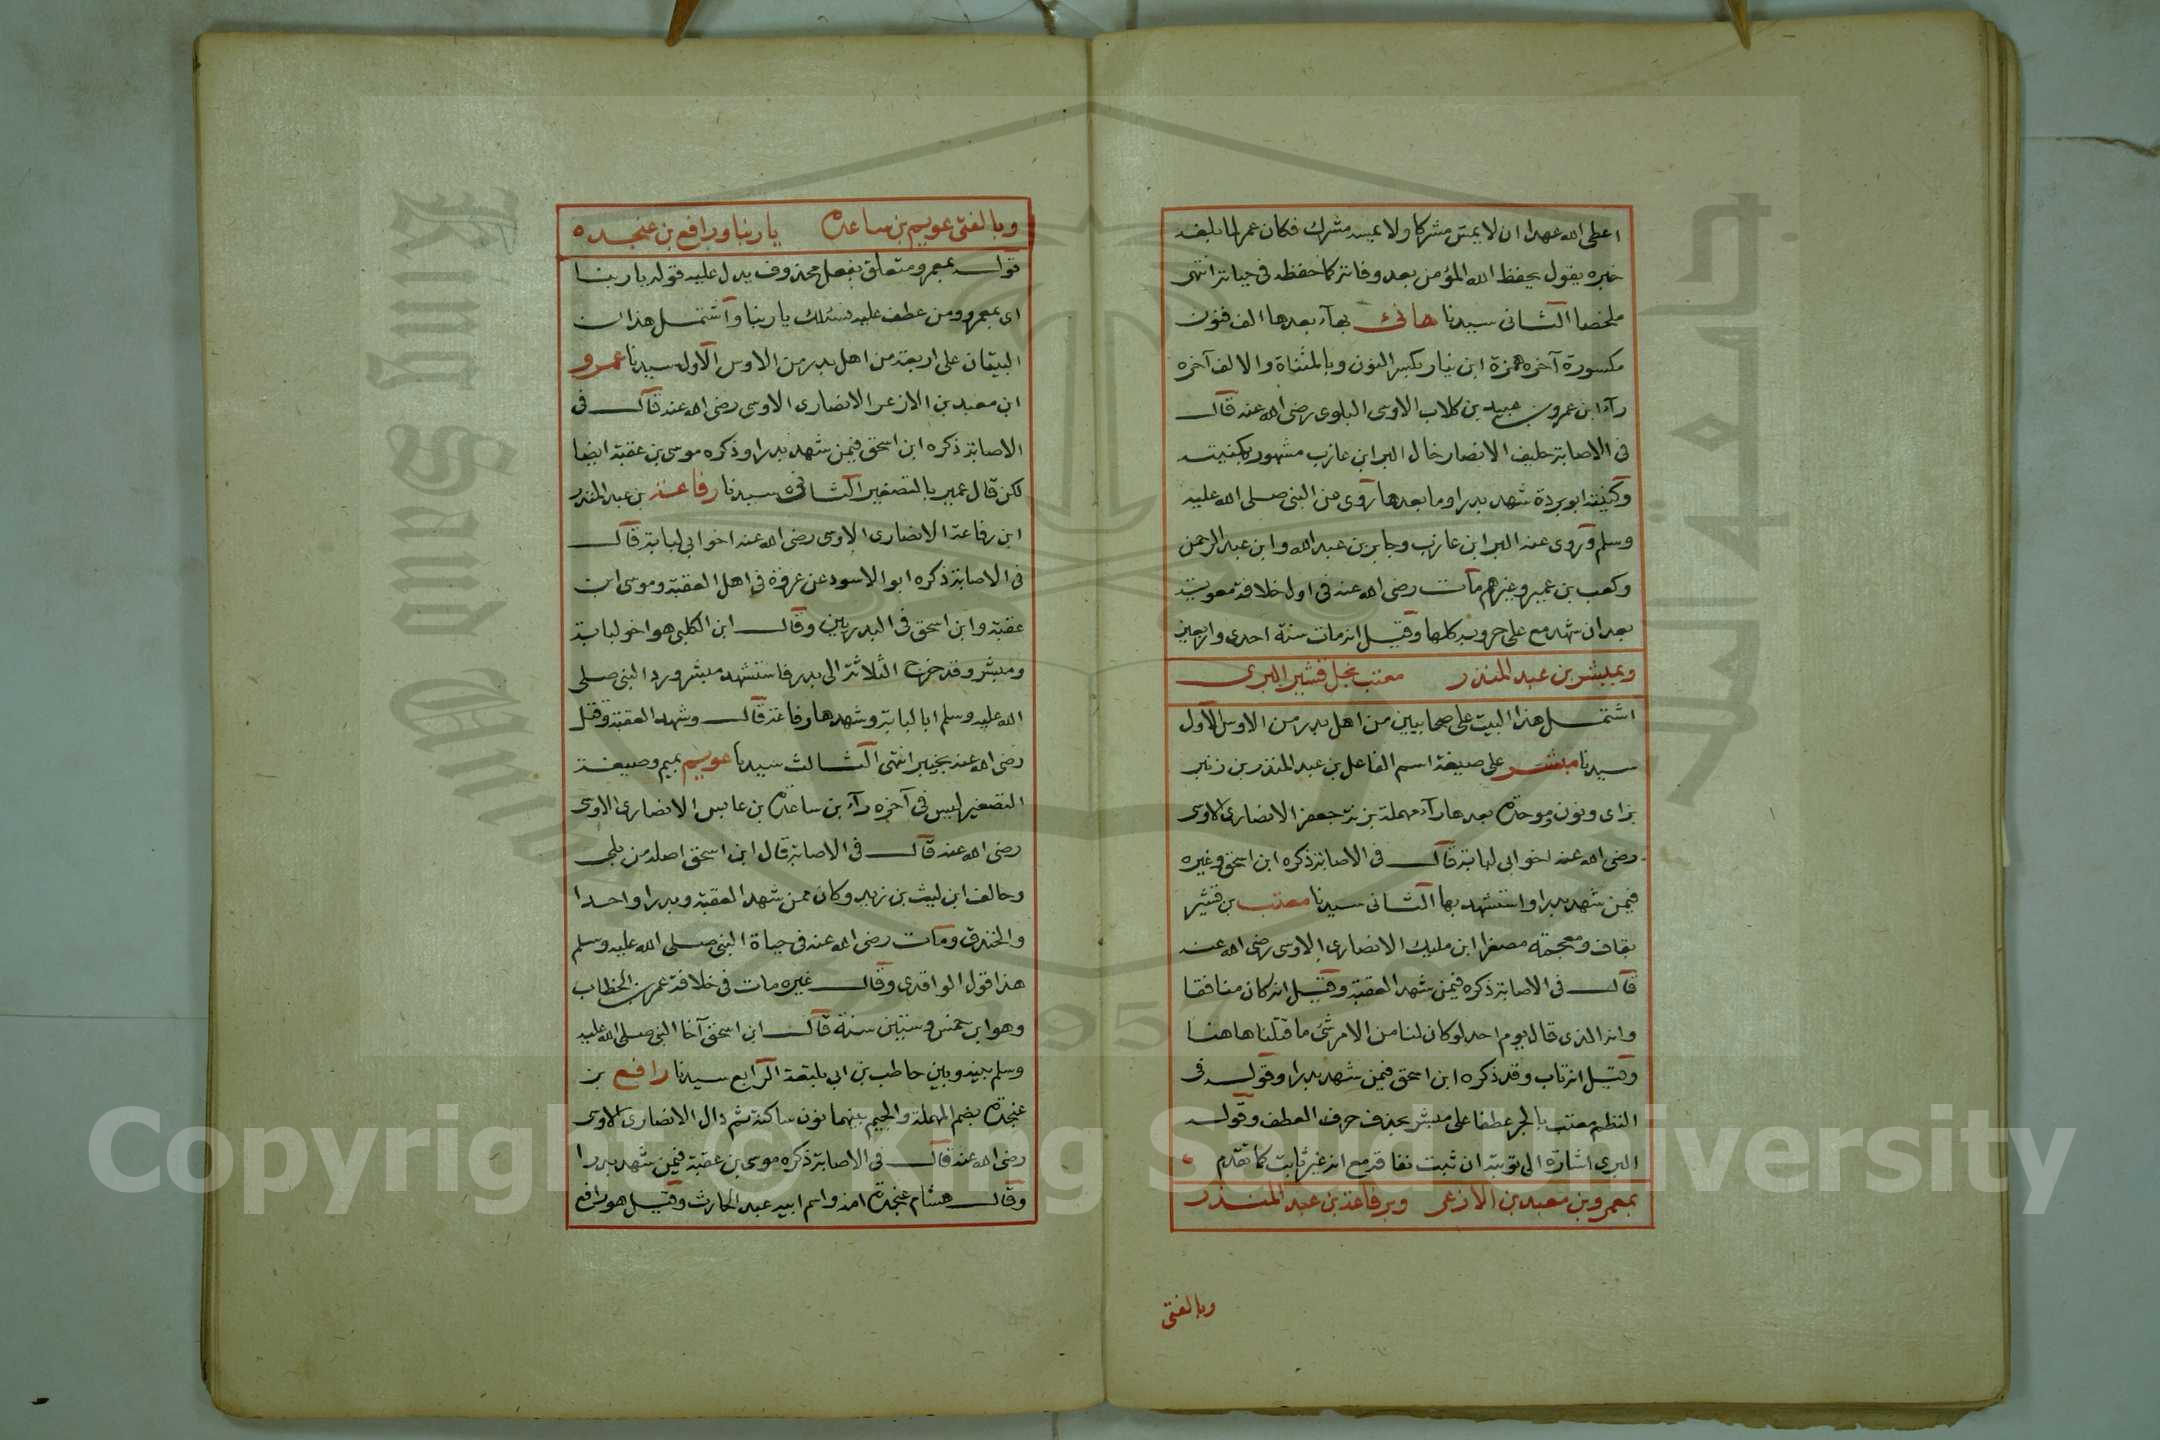 اعطى الله عهدا ان لا يمس مشركا ولا يمسه مشرك فكان عمر لما بلغه
خبره يقول يحفظ الله المؤمن بعد وفاته كما حفظه في حياته انتهى
ملخصا الثاني سيدنا هانئ بهاء بعدها الف فنون
مكسورة آخره همزة ابن نيار بكسر النون وبالمثناة والالف آخره
راء ابن عمرو بن عبيد بن كلاب الاوسى البلوى رضى الله عنه قال
في الاصابة حليف الانصار خال البرا بن عازب مشهور بكنيته
وكنيته ابو بردة شهد بدرا وما بعدها روى عن النبى صلى الله عليه
وسلم وروى عنه البرا بن عازب وجابر بن عبد الله وابن عبد الرحمن
وكعب بن عمير وغيرهم مات رضى الله عنه في اول خلافة معوية
بعد ان شهد مع على حروبه كلها وقيل انه مات سنة احدى واربعين
وبمبشر بن عبد المنذر معتب نجل قشير البرى
اشتمل هذا البيت على صحابيين من اهل بدر من الاوس الاول
سيدنا مبشر على صيغة اسم الفاعل بن عبد المنذر بن زنبر
بزاى ونون وموحدة بعدها راء مهملة بزنة جعفر الانصارى الاوسى
رضى الله عنه اخو ابى لبابة قال في الاصابة ذكره ابن اسحق وغيره
فيمن شهد بدرا واستشهد بها الثاني سيدنا معتب بن قشير
بقاف ومعجمة مصغرا ابن مليك الانصارى الاوسى رضى الله عنه
قال في الاصابة ذكره فيمن شهد العقبة وقيل انه كان منافقا
وانه الذى قال يوم احد لو كان لنا من الامر شئ ما قتلنا هاهنا
وقيل انه تاب وقد ذكره ابن اسحق فيمن شهد بدرا وقوله في
النظم معتب بالجر عطفا على مبشر بحذف حرف العطف وقوله
البرى اشارة الى توبته ان ثبت نفاقه مع انه غير ثابت كما تقدم
بعمرو بن معبد بن الازعر وبرفاعة بن عبد المنذر
وبالفتى
وبالفتى عويم بن ساعدة يا ربنا ورافع بن عنجده
قوله بعمرو متعلق بفعل محذوف يدل عليه قوله يا ربنا
اى بعمرو ومن عطف عليه نسئلك يا ربنا واشتمل هذان
البيتان على اربعة من اهل بدر من الاوس الاول سيدنا عمرو
ابن معبد بن الازعر الانصارى الاوسى رضى الله عنه قال في
الاصابة ذكره ابن اسحق فيمن شهد بدرا وذكره موسى بن عقبة ايضا
لكن قال عمير بالتصغير الثاني سيدنا رفاعة بن عبد المنذر
ابن رفاعة الانصارى الاوسى رضى الله عنه اخو ابى لبابة قال
في الاصابة ذكره ابو الاسود عن عروة في اهل العقبة وموسى ابن
عقبة وابن اسحق في البدريين وقال ابن الكلبى هو اخو لبابة
ومبشر وقد خرج الثلاثة الى بدر فاستشهد مبشر ورد النبى صلى
الله عليه وسلم ابا لبابة وشهدها رفاعة قال وشهد العقبة وقتل
رضى الله عنه بخيبر انتهى الثالث سيدنا عويم بميم وصيغة
التصغير ليس في آخره راء بن ساعدة بن عابس الانصارى الاوسى
رضى الله عنه قال في الاصابة قال ابن اسحق اصله من بلى
وحالف ابن ليث بن زيد وكان ممن شهد العقبة وبدرا واحدا
والخندق ومات رضى الله عنه في حياة النبى صلى الله عليه وسلم
هذا قول الواقدى وقال غيره مات في خلافة عمر بن الخطاب
وهو ابن خمس وستين سنة قال ابن اسحق آخا النبى صلى الله عليه
وسلم بينه وبين حاطب بن ابى بلتعة الرابع سيدنا رافع بن
عنجدة بضم المهملة والجيم بينهما نون ساكنة ثم دال الانصارى الاوسى
رضى الله عنه قال في الاصابة ذكره موسى بن عقبة فيمن شهد بدرا
وقال هشام عنجدة امه واسم ابيه عبد الحارث وقيل هو رافع
Copyright © King Saud University
King Saud University
جامعة الملك سعود
1957